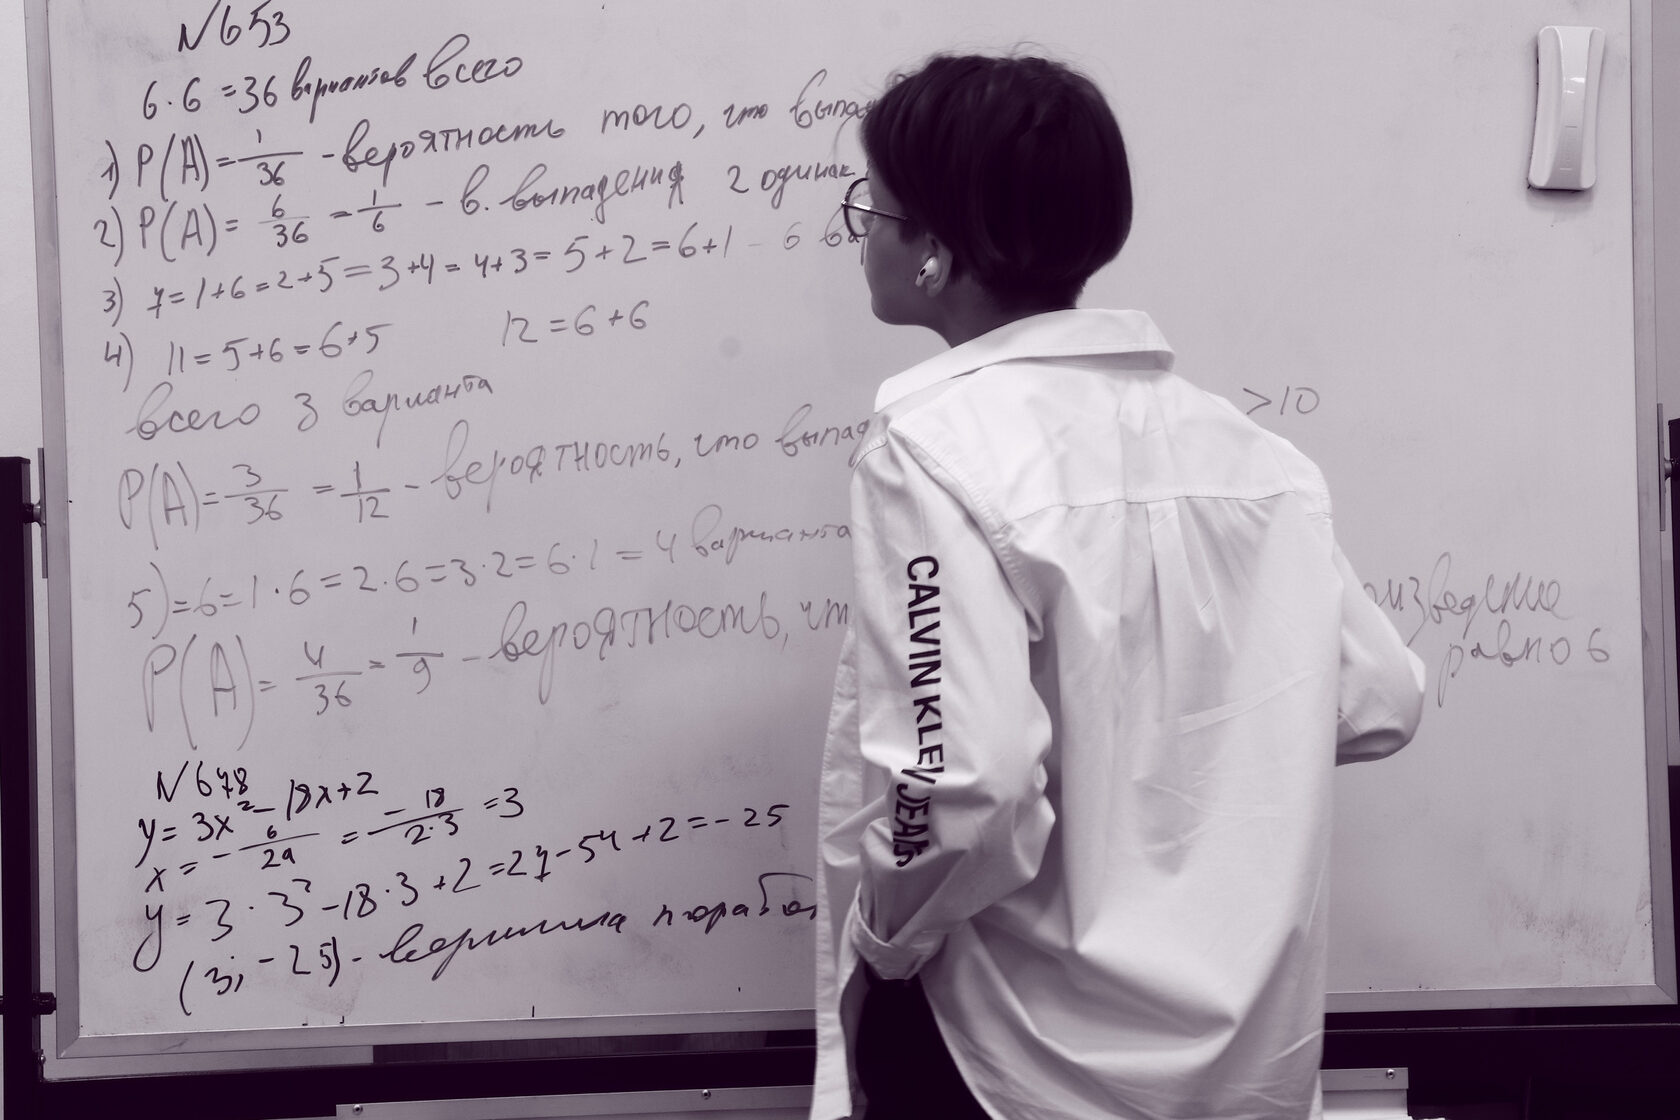 №653
6·6=36 вариантов всего
1) P(A)=1/36 - вероятность того, что выпад
2) P(A)=6/36=1/6 - в. выпадения 2 одинак
3) 7=1+6=2+5=3+4=4+3=5+2=6+1 - 6 ва
4) 11=5+6=6+5 12=6+6
всего 3 варианта >10
P(A)=3/36=1/12 - вероятность, что выпад
5)=6=1·6=2·6=3·2=6·1=4 варианта
P(A)=4/36=1/9 - вероятность, чт оизведение
равно 6
№678
y=3x²-18x+2
x=-в/2а=-18/2·3=3
y=3·3²-18·3+2=27-54+2=-25
(3;-25)- вершина парабол
CALVIN KLEIN JEANS